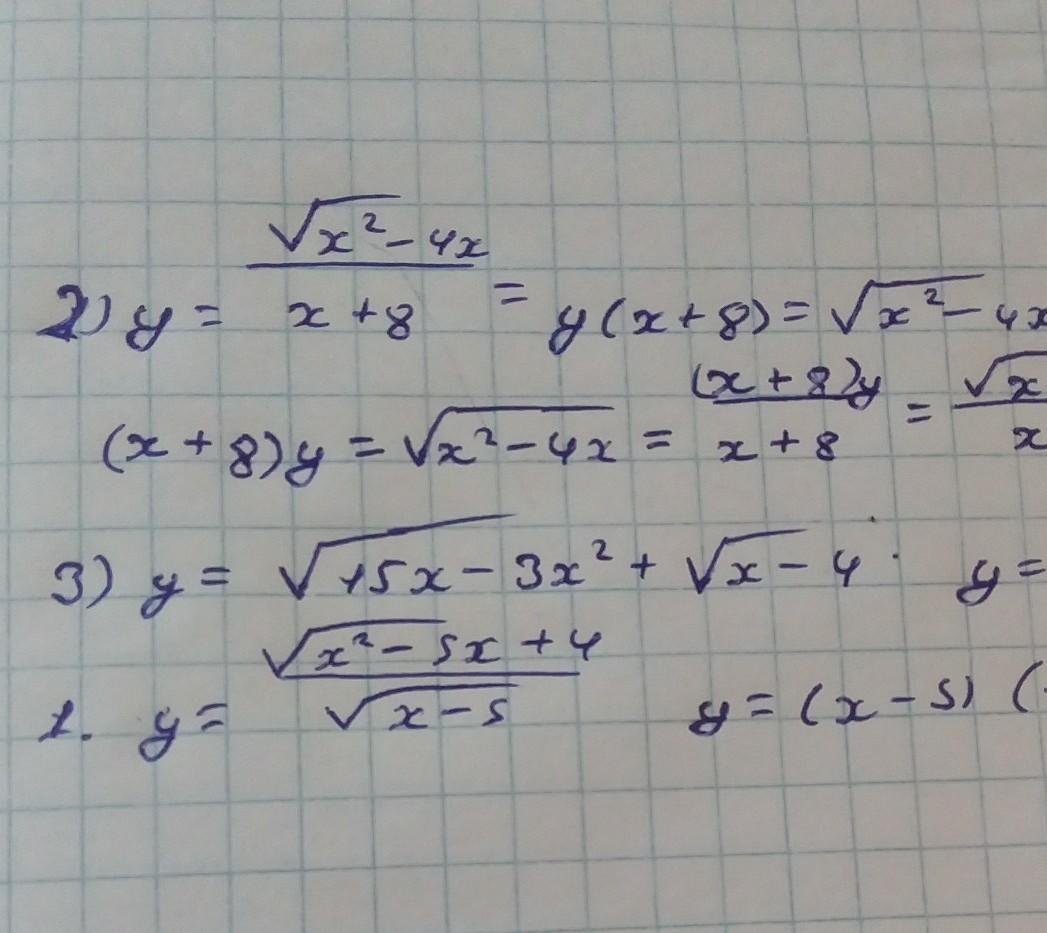 2) y = √x² - 4x / x + 8 = y(x+8) = √x² - 4x
(x + 8)y = √x² - 4x = (x + 8)y / x + 8 = √x / x
3) y = √15x - 3x² + √x - 4 . y =
1. y = √x² - 5x + 4 / √x - 5 y = (x - 5) (